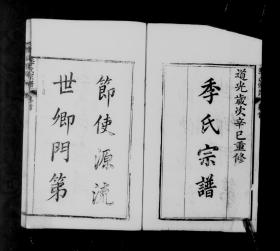 道光歲次辛巳重修
季氏宗譜
節使源流
世卿門第